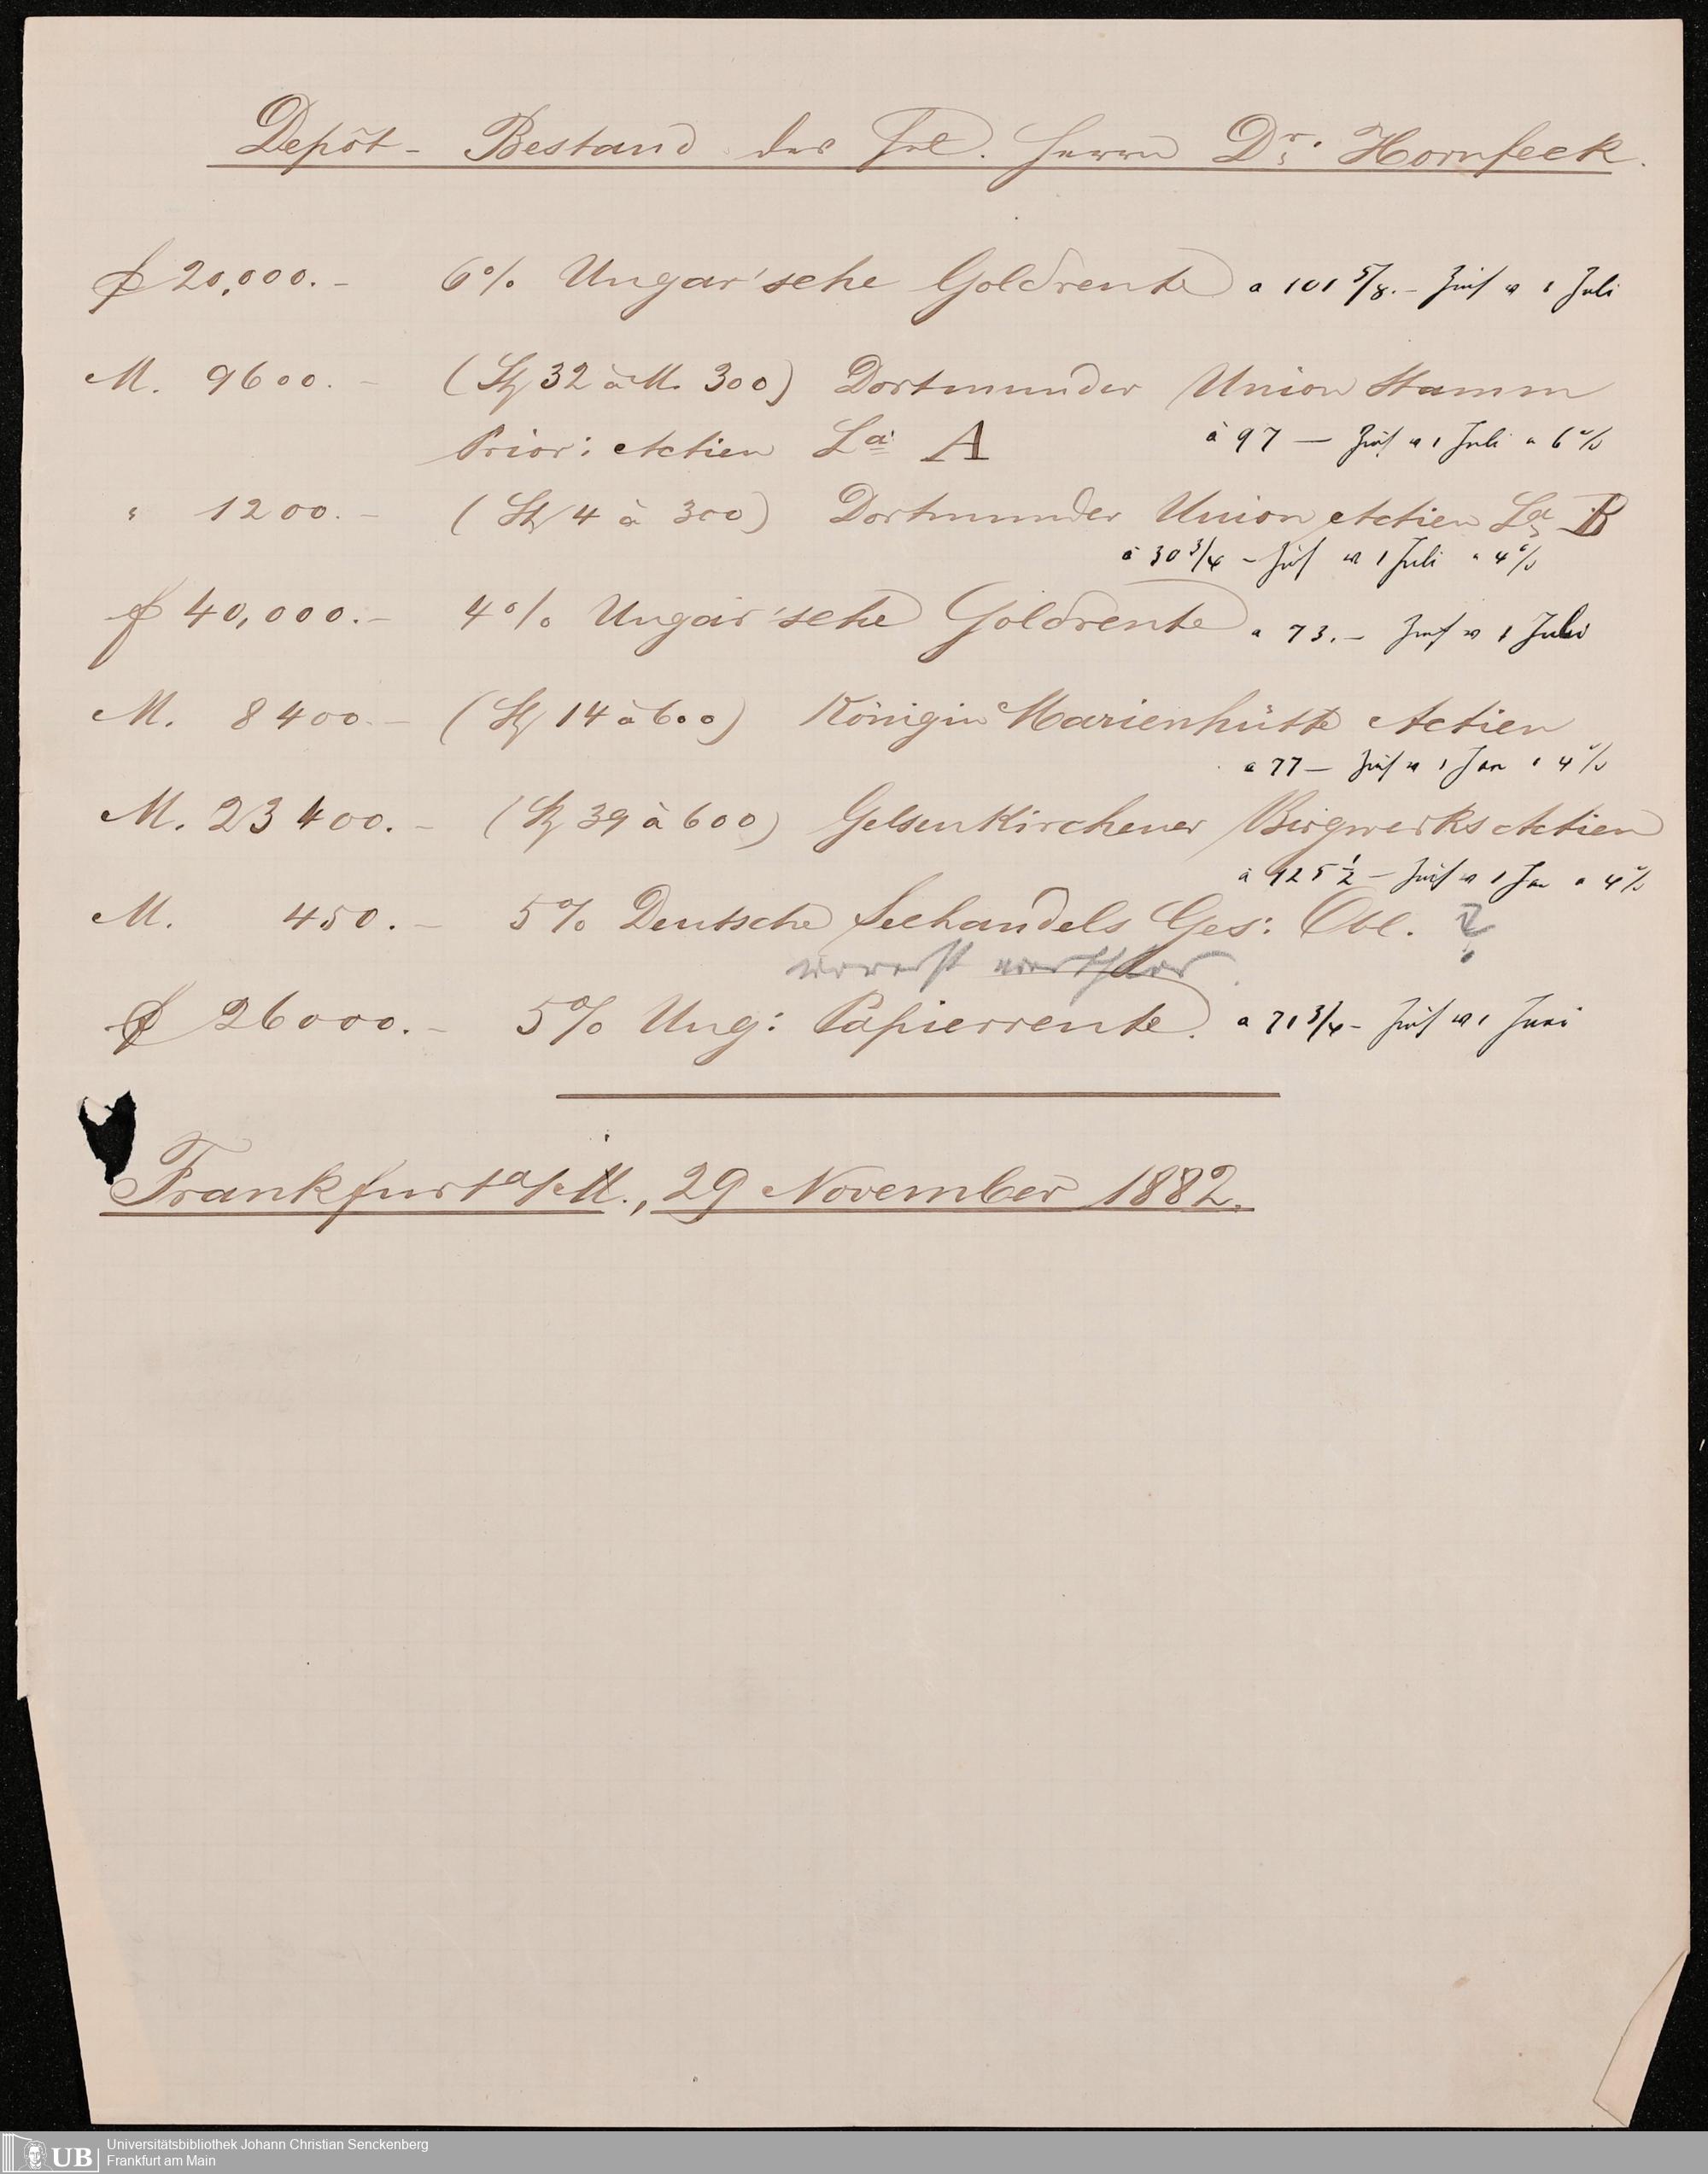 Depôt- Bestand des Frl. Herrn Dr. Hornfeck.
f 20,000.- 6% Ungar'sche Goldrente a 101 5/8.- Zins v 1 Juli
M. 9600.- (St 32 à M. 300) Dortmunder Union Stamm
Prior: Actien La A à 97 — Zins v 1 Juli a 6%
" 1200.- (St 4 à 300) Dortmunder Union Actien La B
à 30 3/4 - Zins v 1 Juli a 4%
f 40,000.- 4% Ungar'sche Goldrente a 73.- Zins v 1 Juli
M. 8400.- (St 14 à 600) Königin Marienhütte Actien
a 77 — Zins v 1 Jan a 4%
M. 23400.- (St 39 à 600) Gelsenkirchener Bergwerks Actien
à 125 1/2 - Zins v 1 Jan a 4%
M. 450.- 5% Deutsche Seehandels Ges: Obl. ?
f 26000.- 5% Ung: Papierrente. a 71 3/4 - Zins v 1 Juni
Frankfurt a/M., 29 November 1882.
UB Universitätsbibliothek Johann Christian Senckenberg
Frankfurt am Main